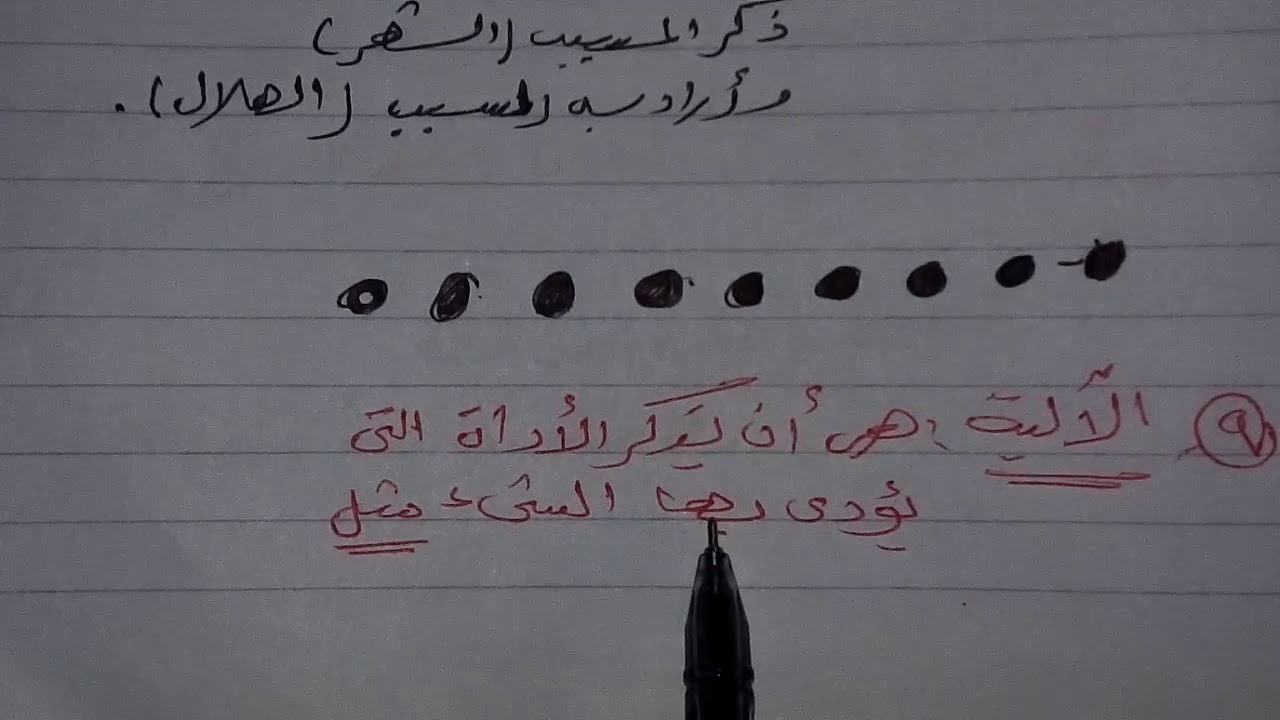 ذكر المسبب (الشهر)
وأراد به المسبب (الهلال).
٩ الآلية : هي أن يَذكر الأداة التى
يؤدى بها الشىء مثل